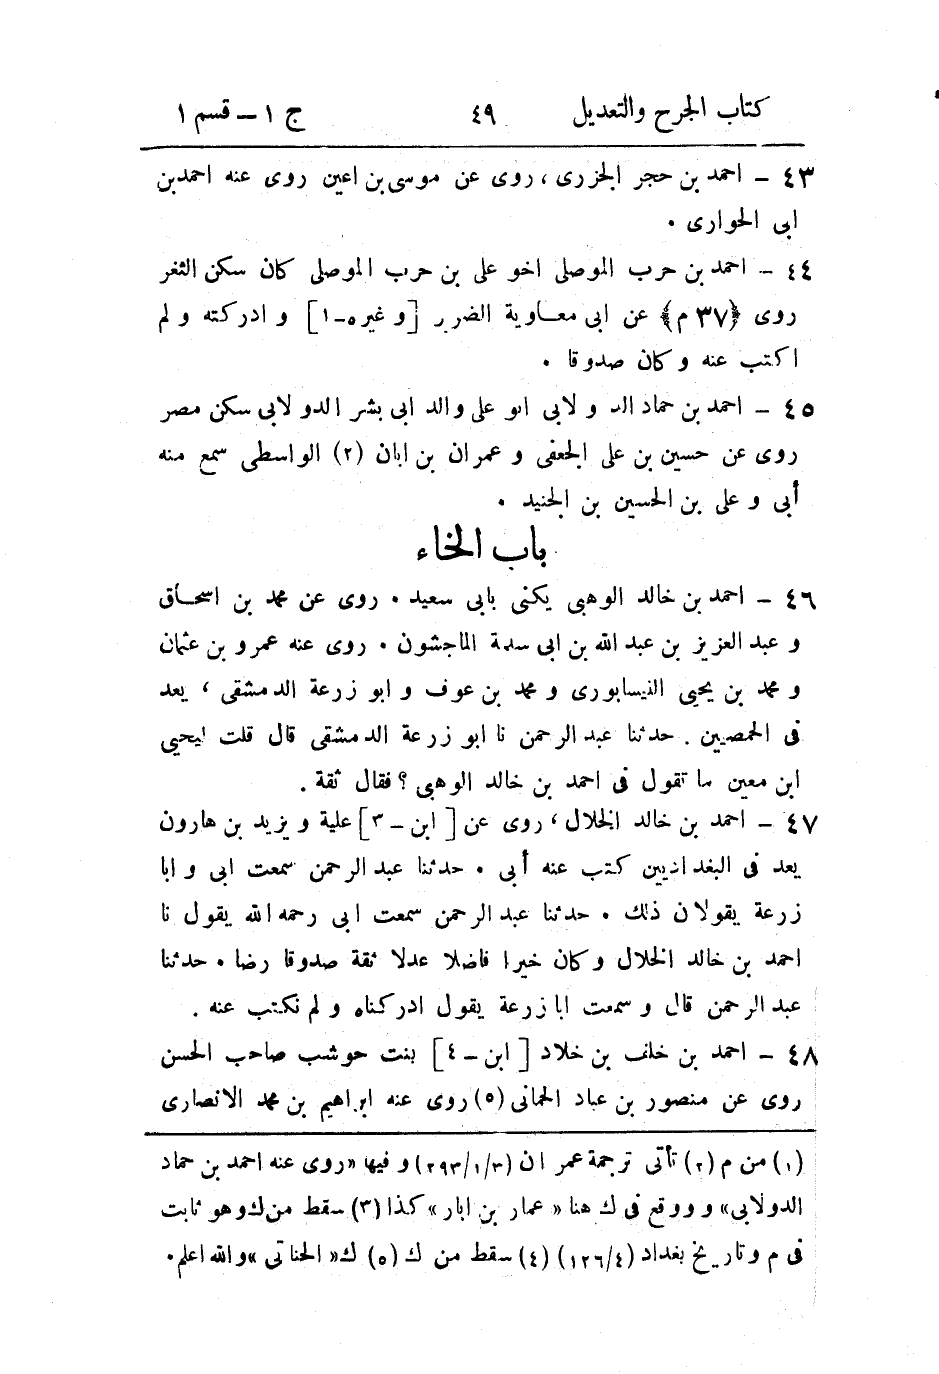 كتاب الجرح والتعديل ٤٩ ج ١ – قسم ١
٤٣ – احمد بن حجر الجزرى، روى عن موسى بن اعين روى عنه احمد بن
ابى الحوارى .
٤٤ – احمد بن حرب الموصلى اخو على بن حرب الموصلى كان سكن الثغر
روى ﴿٣٧ م﴾ عن ابى معاوية الضرير [وغيره-١] و ادركته و لم
اكتب عنه و كان صدوقا .
٤٥ – احمد بن حماد الدولابى ابو على والد ابى بشر الدولابى سكن مصر
روى عن حسين بن على الجعفى و عمران بن ابان (٢) الواسطى سمع منه
أبى و على بن الحسين بن الجنيد .
باب الخاء
٤٦ – احمد بن خالد الوهبى يكنى بابى سعيد . روى عن محمد بن اسحاق
و عبد العزيز بن عبد الله بن ابى سلمة الماجشون . روى عنه عمرو بن عثمان
و محمد بن يحيى النيسابورى و محمد بن عوف و ابو زرعة الدمشقى ، يعد
فى الحمصيين . حدثنا عبد الرحمن نا ابو زرعة الدمشقى قال قلت ليحيى
ابن معين ما تقول فى احمد بن خالد الوهبى ؟ فقال ثقة .
٤٧ – احمد بن خالد الخلال ، روى عن [ ابن – ٣] علية و يزيد بن هارون
يعد فى البغداديين كتب عنه أبى . حدثنا عبد الرحمن سمعت ابى و ابا
زرعة يقولان ذلك . حدثنا عبد الرحمن سمعت ابى رحمه الله يقول نا
احمد بن خالد الخلال وكان خيرا فاضلا عدلا ثقة صدوقا رضا . حدثنا
عبد الرحمن قال و سمعت ابا زرعة يقول ادركناه و لم نكتب عنه .
٤٨ – احمد بن خلف بن خلاد [ ابن – ٤] بنت حوشب صاحب الحسن
روى عن منصور بن عباد الحمانى (٥) روى عنه ابراهيم بن محمد الانصارى
(١) من م (٢) تأتى ترجمة عمران (٢٩٣/١/٣) و فيها «روى عنه احمد بن حماد
الدولابى» و ووقع فى ك هنا « عمار بن ابار » كذا (٣) سقط من ك وهو ثابت
فى م وتاريخ بغداد (١٢٦/٤) (٤) سقط من ك (٥) ك« الحناتى »والله اعلم.